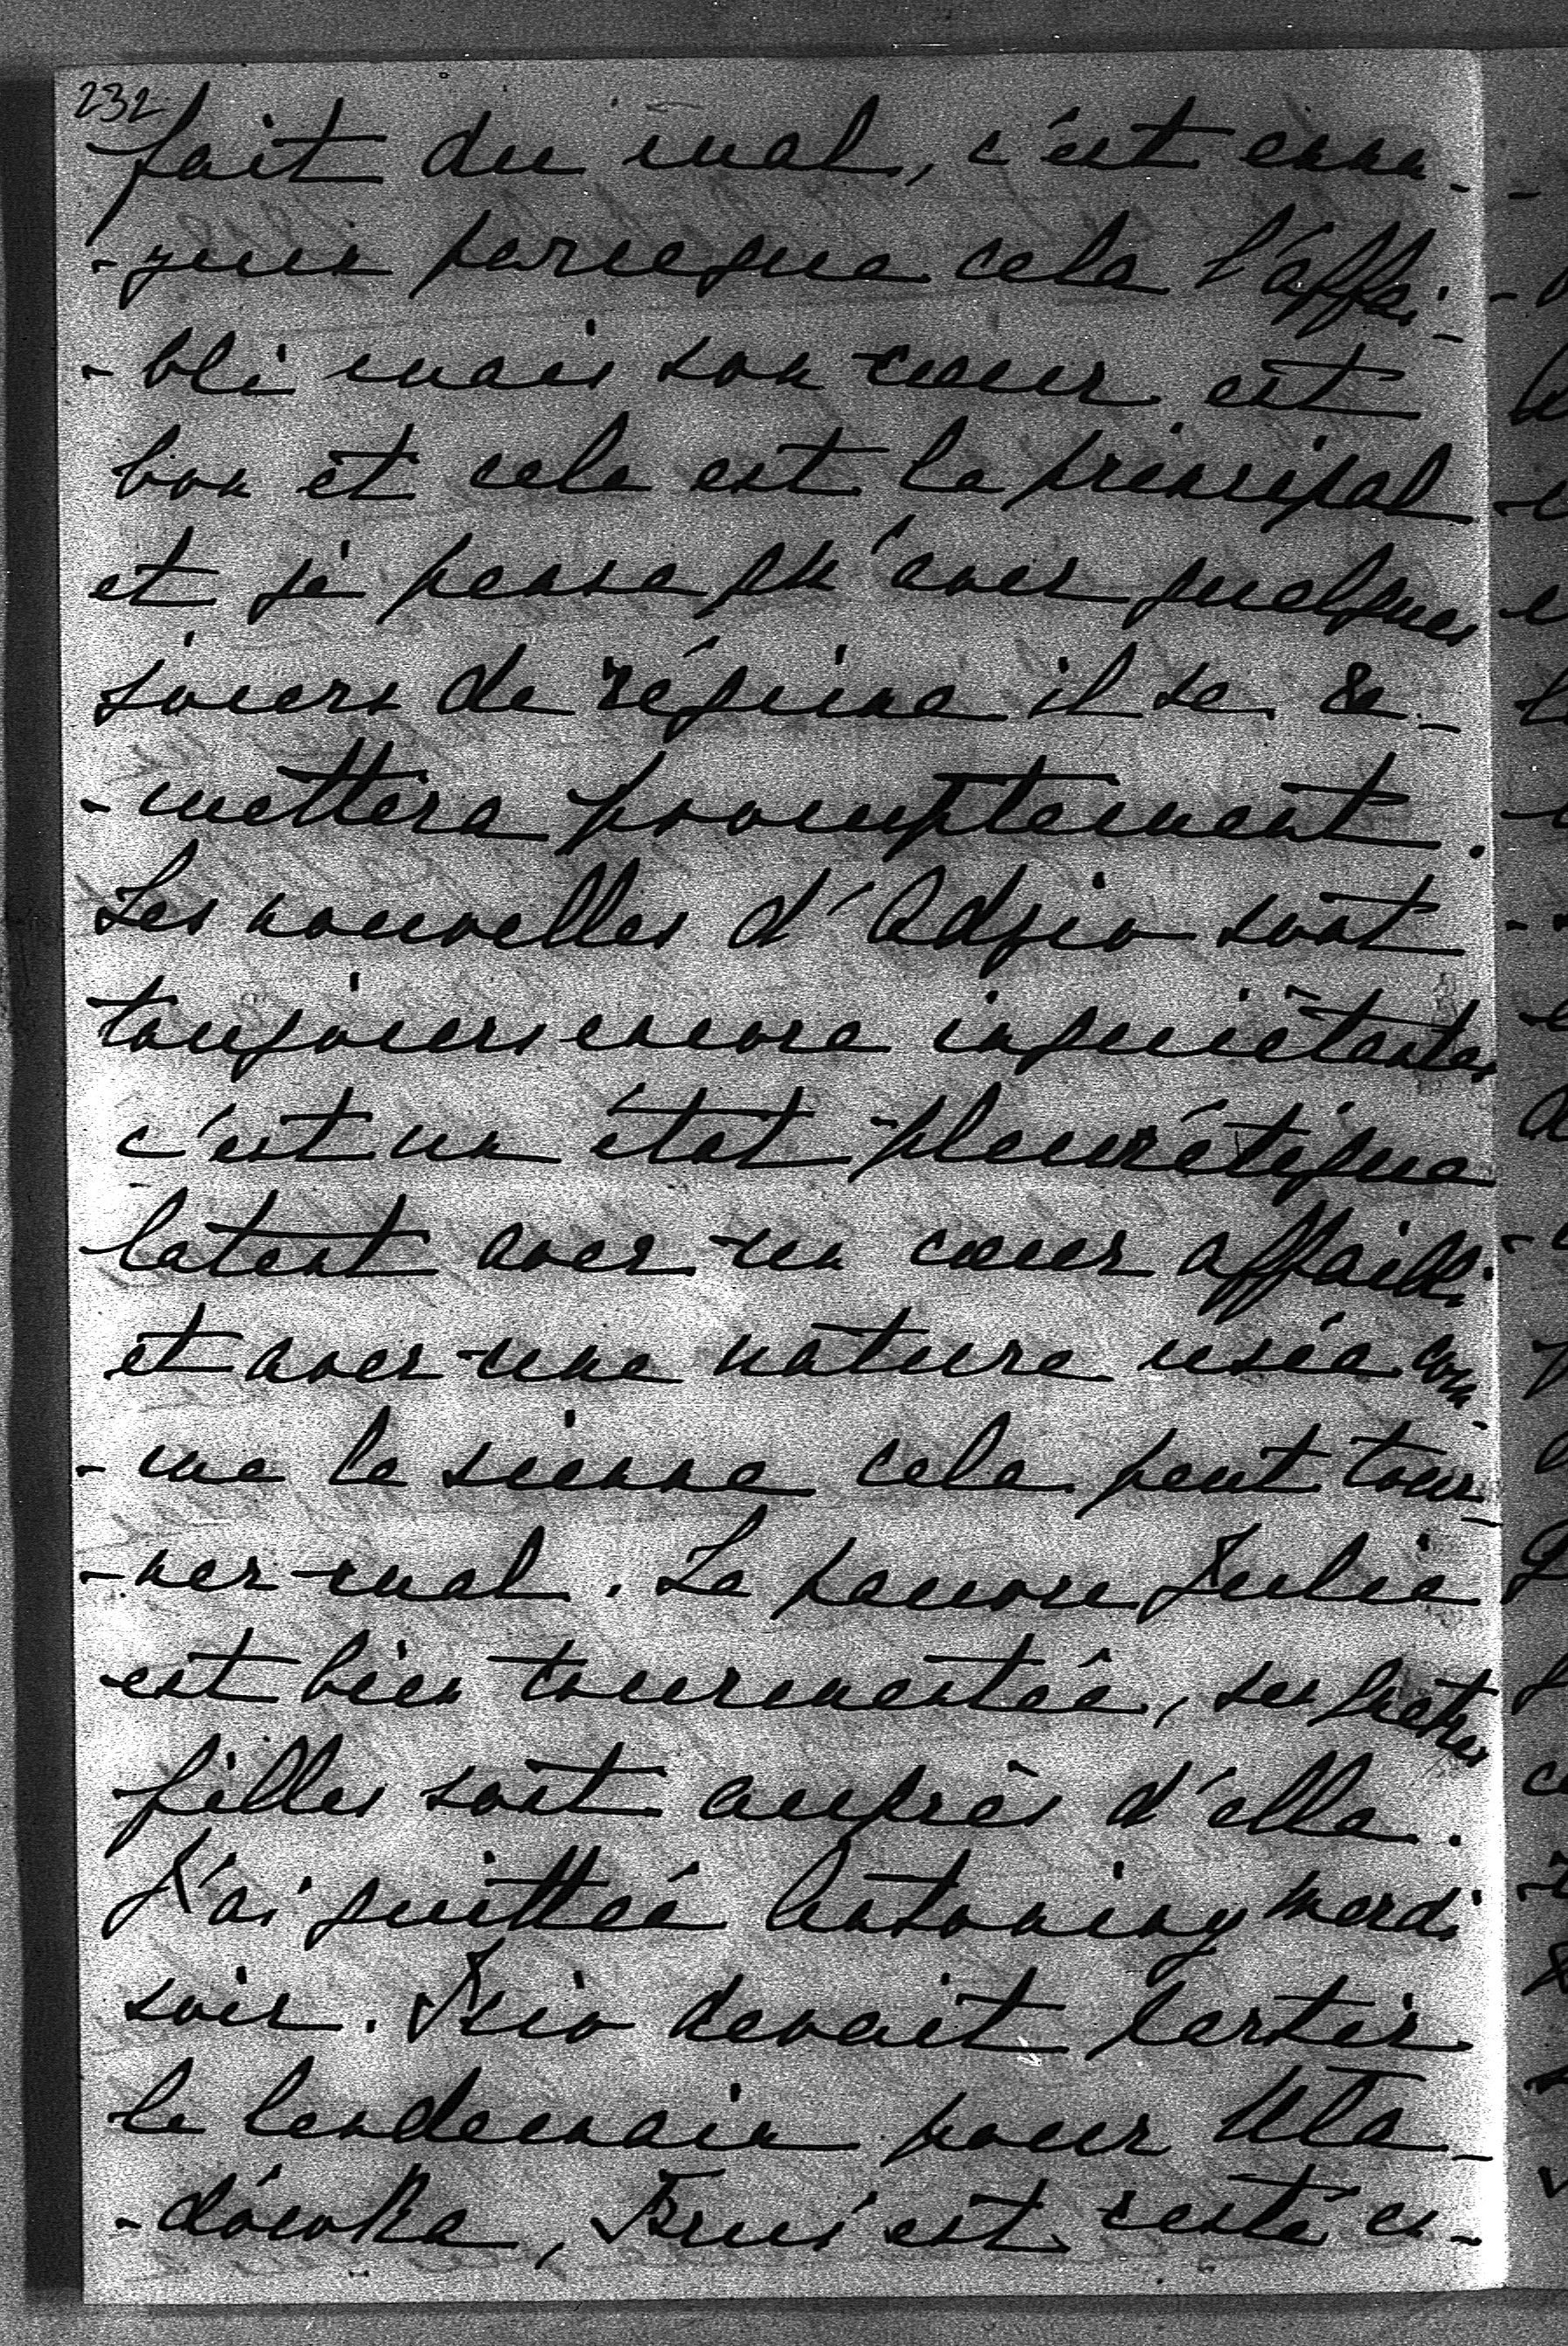 232
fait du mal, c'est ennu-
-yeux parceque cela l'affai-
-bli mais son cœur est
bon et cela est le principal
et je pense qu'avec quelques
jours de régime il se re-
-mettera promptement.
Les nouvelles d'Adzio sont
toujours encore inquiétantes
c'est un état pleurétique
latent avec un cœur affaibli
et avec une nature usée com-
-me la sienne cela peut tour-
-ner mal. La pauvre Julie
est bien tourmentée, ses petites
filles sont auprès d'elle.
J'ai quittée Antoniny mardi
soir. Józio devait partir
le lendemain pour Mła-
-dówka, est resté en-